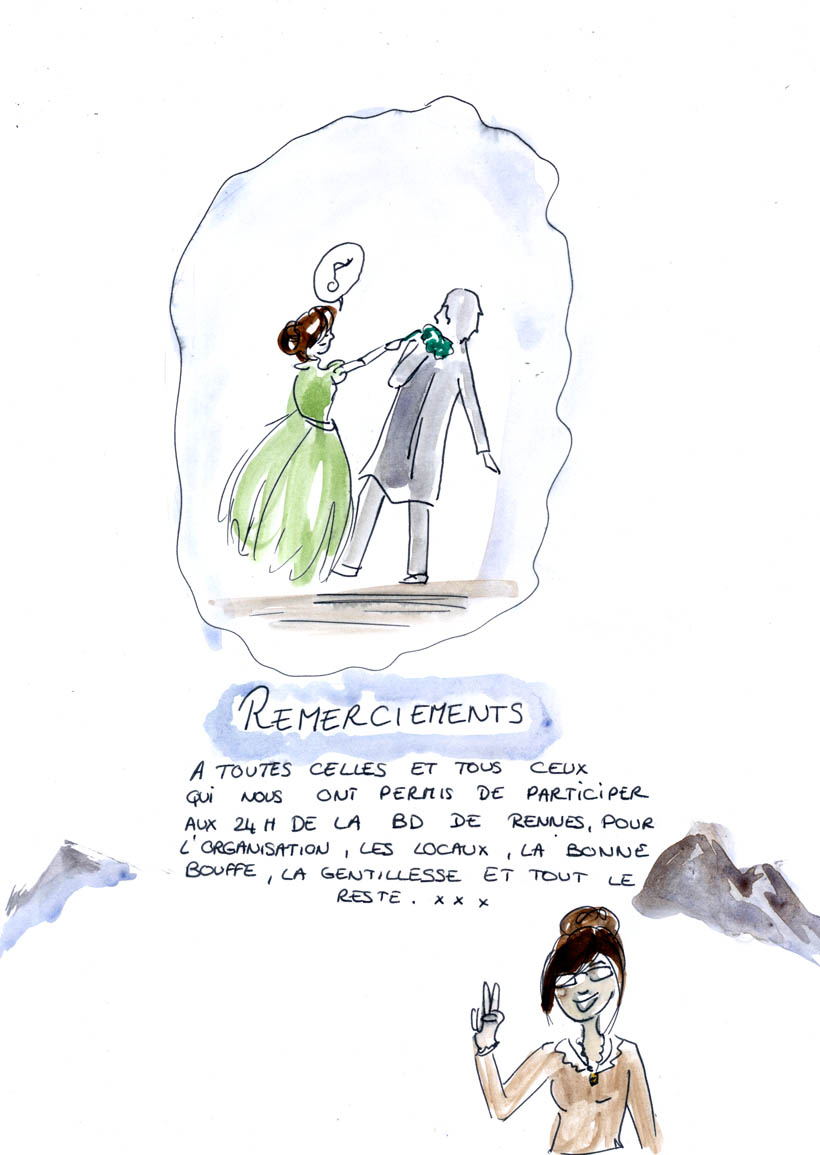 REMERCIEMENTS
A TOUTES CELLES ET TOUS CEUX
QUI NOUS ONT PERMIS DE PARTICIPER
AUX 24 H DE LA BD DE RENNES, POUR
L'ORGANISATION, LES LOCAUX, LA BONNE
BOUFFE, LA GENTILLESSE ET TOUT LE
RESTE. x x x